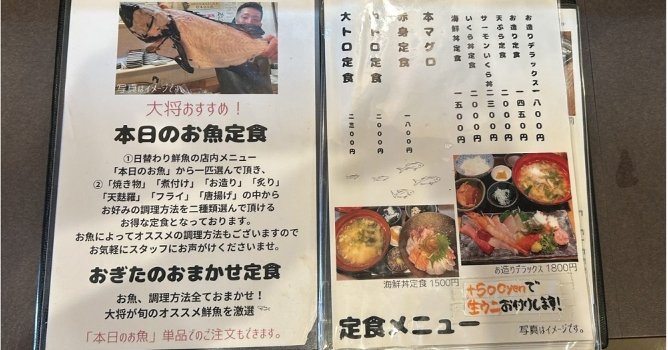 写真はイメージです。
大将おすすめ！
本日のお魚定食
①日替わり鮮魚の店内メニュー
「本日のお魚」から一匹選んで頂き、
②「焼き物」「煮付け」「お造り」「炙り」
「天麩羅」「フライ」「唐揚げ」の中から
お好みの調理方法を二種類選んで頂ける
お得な定食となっております。
お魚によってオススメの調理方法もございますので
お気軽にスタッフにお声がけくださいませ。
おぎたのおまかせ定食
お魚、調理方法全ておまかせ！
大将が旬のオススメ鮮魚を激選
「本日のお魚」単品でのご注文もできます。
お造りデラックス一八〇〇円
お造り定食 一四五〇円
天ぷら定食 二〇〇〇円
サーモンいくら丼 二三〇〇円
いくら丼定食 二五〇〇円
海鮮丼定食 一五〇〇円
本マグロ
赤身定食 一八〇〇円
中トロ定食 二〇〇〇円
大トロ定食 二三〇〇円
海鮮丼定食 1500円
お造りデラックス 1800円
+500yenで
生ウニおかわりします!
定食メニュー
写真はイメージです。